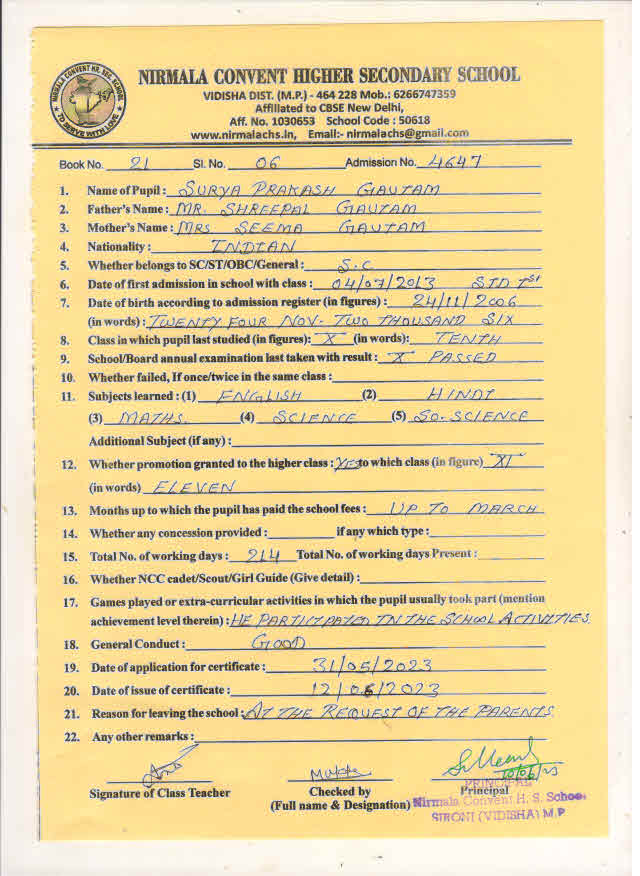 NIRMALA CONVENT HR. SEC. SCHOOL
TO SERVE WITH LOVE
NIRMALA CONVENT HIGHER SECONDARY SCHOOL
VIDISHA DIST. (M.P.) - 464 228 Mob.: 6266747359
Affillated to CBSE New Delhi,
Aff. No. 1030653 School Code : 50618
www.nirmalachs.in, Email:- nirmalachs@gmail.com
Book No. 21 Sl. No. 06 Admission No. 4647
1. Name of Pupil : SURYA PRAKASH GAUTAM
2. Father's Name : MR. SHREEPAL GAUTAM
3. Mother's Name : MRS SEEMA GAUTAM
4. Nationality : INDIAN
5. Whether belongs to SC/ST/OBC/General : S.C
6. Date of first admission in school with class : 04/07/2013 STD 1st
7. Date of birth according to admission register (in figures) : 24/11/2006
(in words) : TWENTY FOUR NOV- TWO THOUSAND SIX
8. Class in which pupil last studied (in figures): X (in words): TENTH
9. School/Board annual examination last taken with result : X PASSED
10. Whether failed, If once/twice in the same class :
11. Subjects learned : (1) ENGLISH (2) HINDI
(3) MATHS. (4) SCIENCE (5) SO-SCIENCE
Additional Subject (if any) :
12. Whether promotion granted to the higher class : YES to which class (in figure) XI
(in words) ELEVEN
13. Months up to which the pupil has paid the school fees : UP TO MARCH
14. Whether any concession provided : if any which type :
15. Total No. of working days : 214 Total No. of working days Present :
16. Whether NCC cadet/Scout/Girl Guide (Give detail) :
17. Games played or extra-curricular activities in which the pupil usually took part (mention
achievement level therein) : HE PARTICIPATED IN THE SCHOOL ACTIVITIES
18. General Conduct : GOOD
19. Date of application for certificate : 31/05/2023
20. Date of issue of certificate : 12/06/2023
21. Reason for leaving the school : AT THE REQUEST OF THE PARENTS
22. Any other remarks :
Signature of Class Teacher
Checked by
(Full name & Designation)
Principal
PRINCIPAL
Nirmala Convent H. S. School
SIRONJ (VIDISHA) M.P